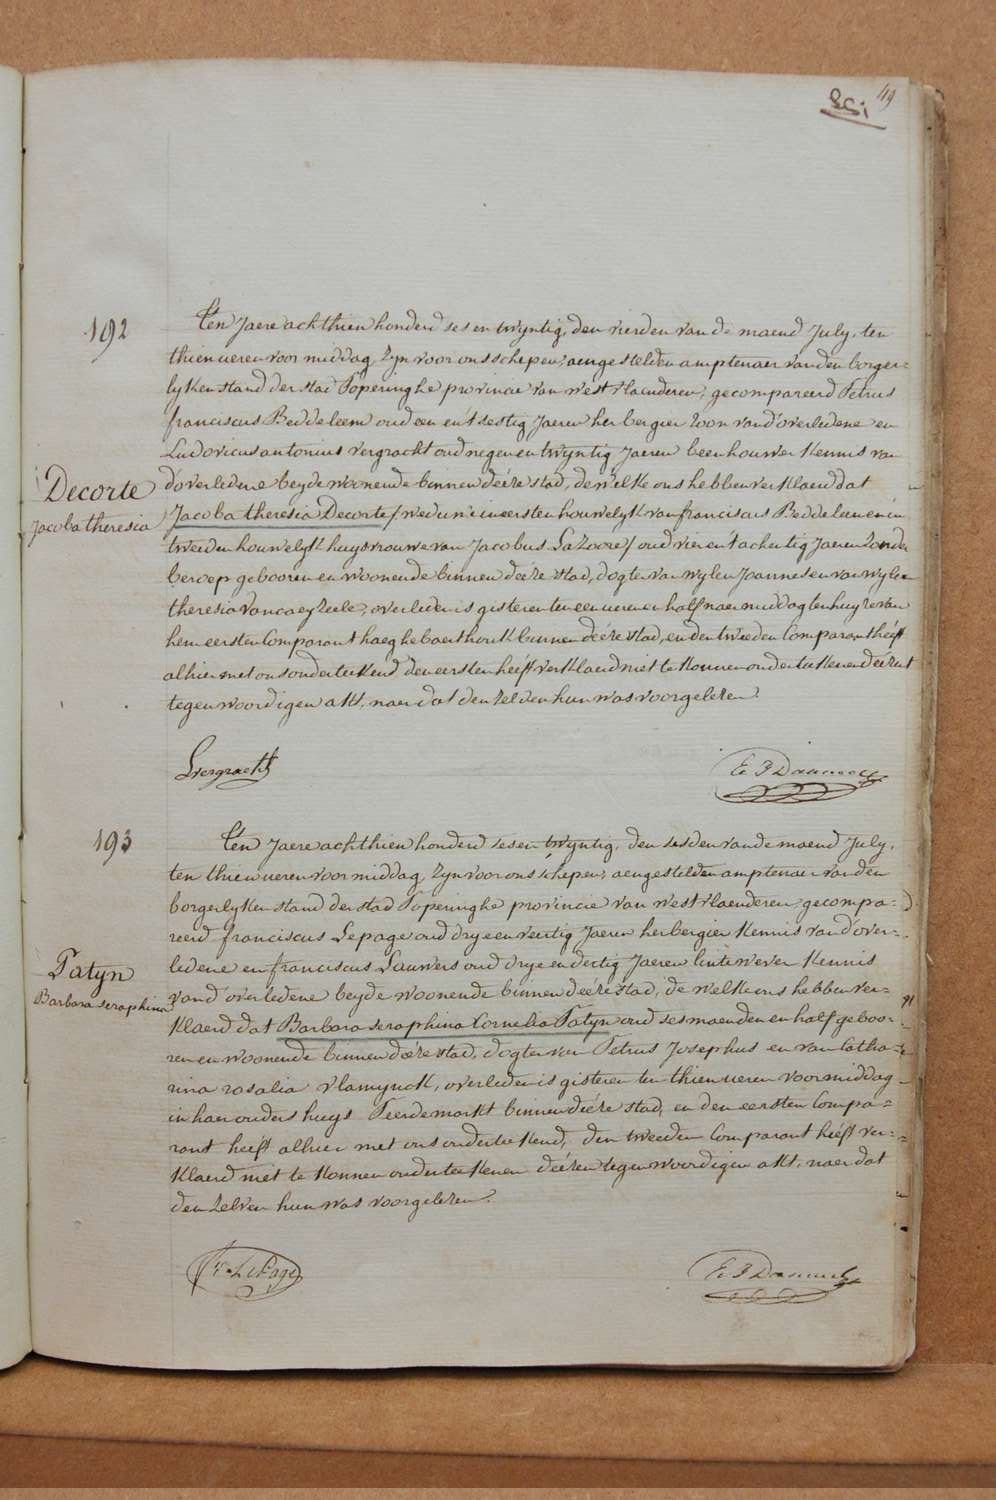 49
192
Ten Jaere achthien honderd sesentwyntig, den vierden van de maend July, ten
thien ueren voor middag, Zyn voor ons schepen, aengestelden amptenaer van den borger=
lyken stand der stad Poperinghe provincie van westvlaenderen, gecompareerd Petrus
franciscus Beddeleem oud een en t'sestig Jaeren herbergier zoon van d'overledene en
Ludovicus antonius vergracht oud negenentwyntig Jaeren beenhouwer Kennis van
Decorte
Jacoba theresia
d'overledene beyde woonende binnen deéze stad, de welke ons hebben verklaerd dat
Jacoba theresia Decorte / weduwe in eersten houwelyk van franciscus Beddeleem en in
tweeden houwelyk huysvrouwe van Jacobus LaZoore / oud vier en t'achentig Jaeren Zonder
beroep gebooren en woonende binnen deéze stad, dogter van wylen Joannes en van wylen
theresia Vancaeyzeele, overleden is gisteren ten een ueren en half naermiddag ten huyze van
hem eersten Comparant haeghebaerthouk binnen deéze stad, en den tweeden Comparant heéft
alhier met ons onderteekend den eersten heéft verklaerd niet te konnen onderteekenen deézen
tegenwoordigen akt, naer dat den Zelven hun was voorgelezen.
Lvergracht
193
Ten Jaere achthien honderd sesentwyntig, den sesden van de maend July,
ten thien ueren voor middag, Zyn voor ons schepen, aengestelden amptenaer van den
borgerlyken stand der stad Poperinghe provincie van westvlaenderen, gecompa=
reerd franciscus Lepage oud dry en veertig Jaeren herbergier Kennis van d'over=
Patyn
Barbara seraphina
ledene en franciscus Lauwers oud drye en dertig Jaeren lintewever Kennis
van d'overledene beyde woonende binnen deéze stad, de welke ons hebben ver=
klaerd dat Barbara seraphina Cornelia Patyn oud ses maenden en half geboo=
ren en woonende binnen deéze stad, dogter van Petrus Josephus en van Catha=
rina rosalia Vlamynck, overleden is gisteren ten thien ueren voormiddag
in haer ouders huys Peerdemarkt binnen deéze stad, en den eersten Compa=
rant heéft alhier met ons onderteekend, den tweeden Comparant heéft ver=
klaerd niet te konnen onderteekenen deézen tegenwoordigen akt, naer dat
den Zelven hun was voorgelezen.
F. LePage